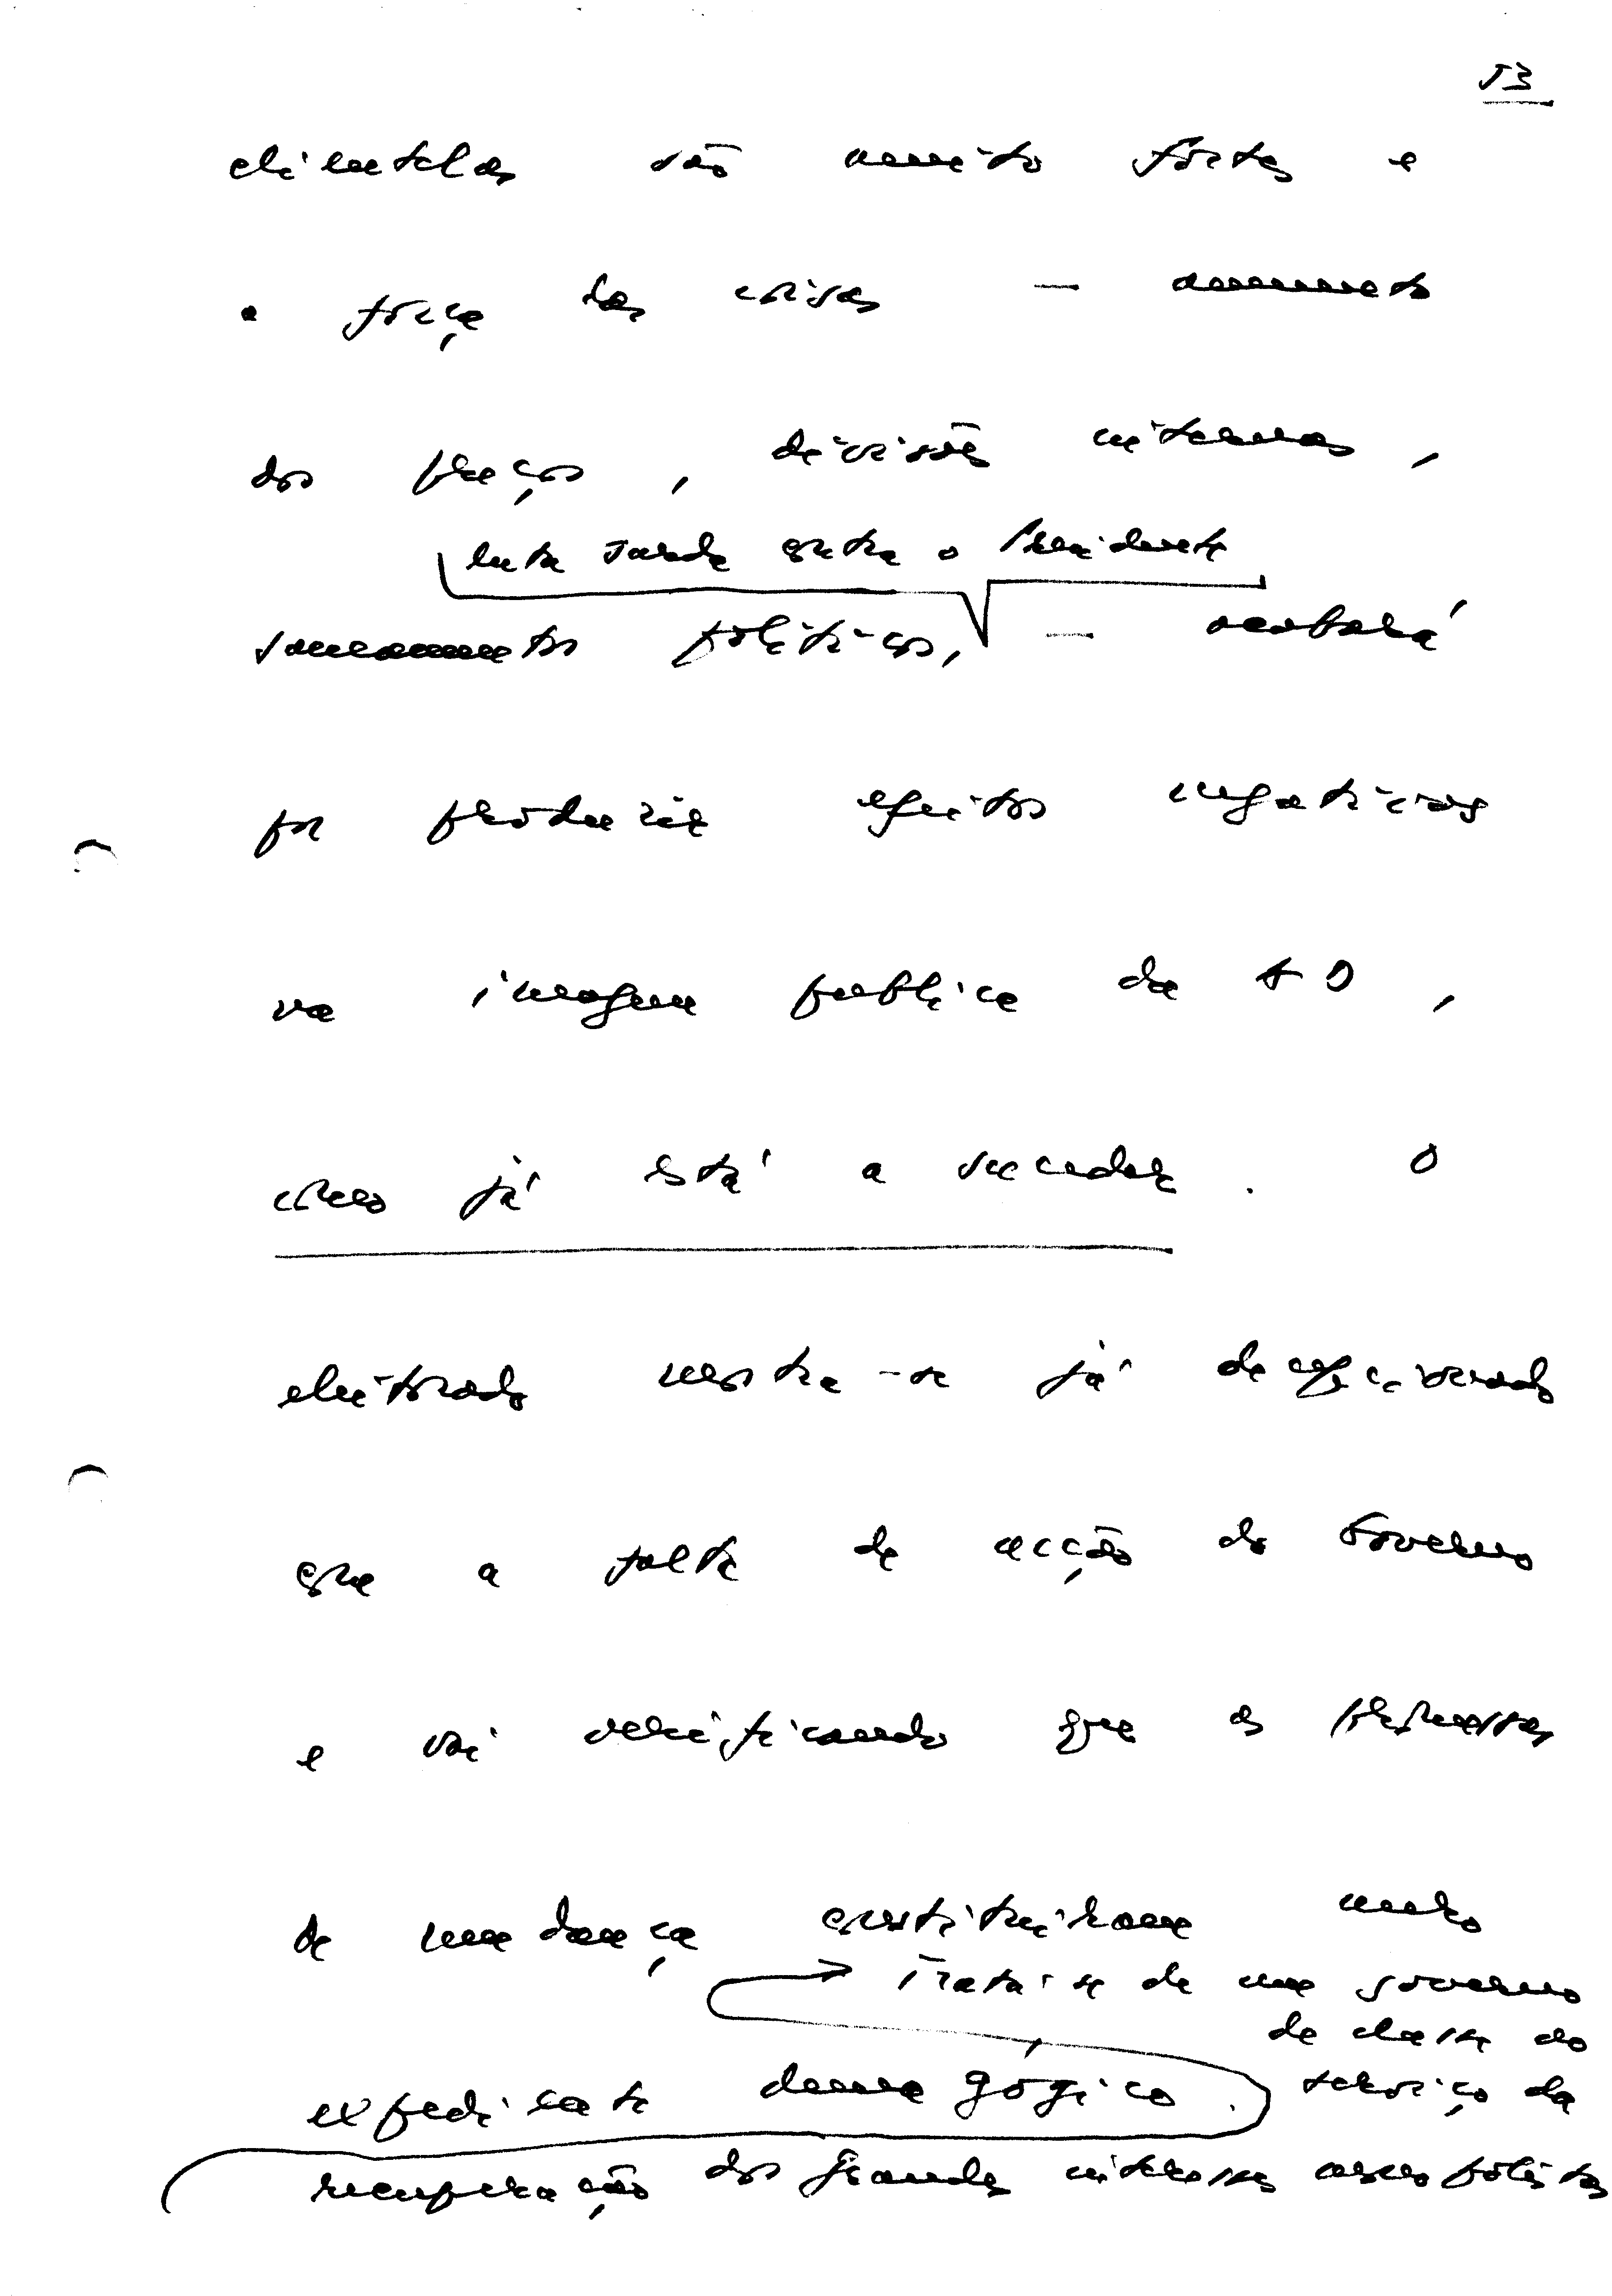 53
clientelas são muito fortes e
a força das coisas — aumento
dos preços, divisões internas,
luta surda contra o Presidente
saneamentos políticos, — acabará
por produzir efeitos negativos
na imagem publica da AD,
como já está a suceder. O
eleitorado mostra-se já decepcionado
com a falta de acção do Governo
e vai verificando que as promessas
de mudança constituiram mero
Trata-se de um governo
de classe ao
expediente demagógico. serviço da
recuperação dos grandes interesses monopolistas